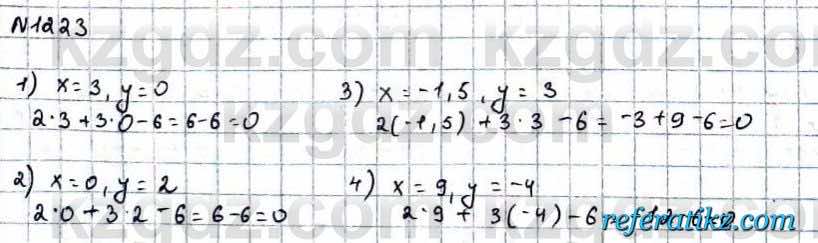 N1223
1) x=3, y=0
2·3+3·0-6=6-6=0
2) x=0, y=2
2·0+3·2-6=6-6=0
3) x=-1,5, y=3
2(-1,5)+3·3-6=-3+9-6=0
4) x=9, y=-4
2·9+3(-4)-6
kzgdz.com
referatikz.com